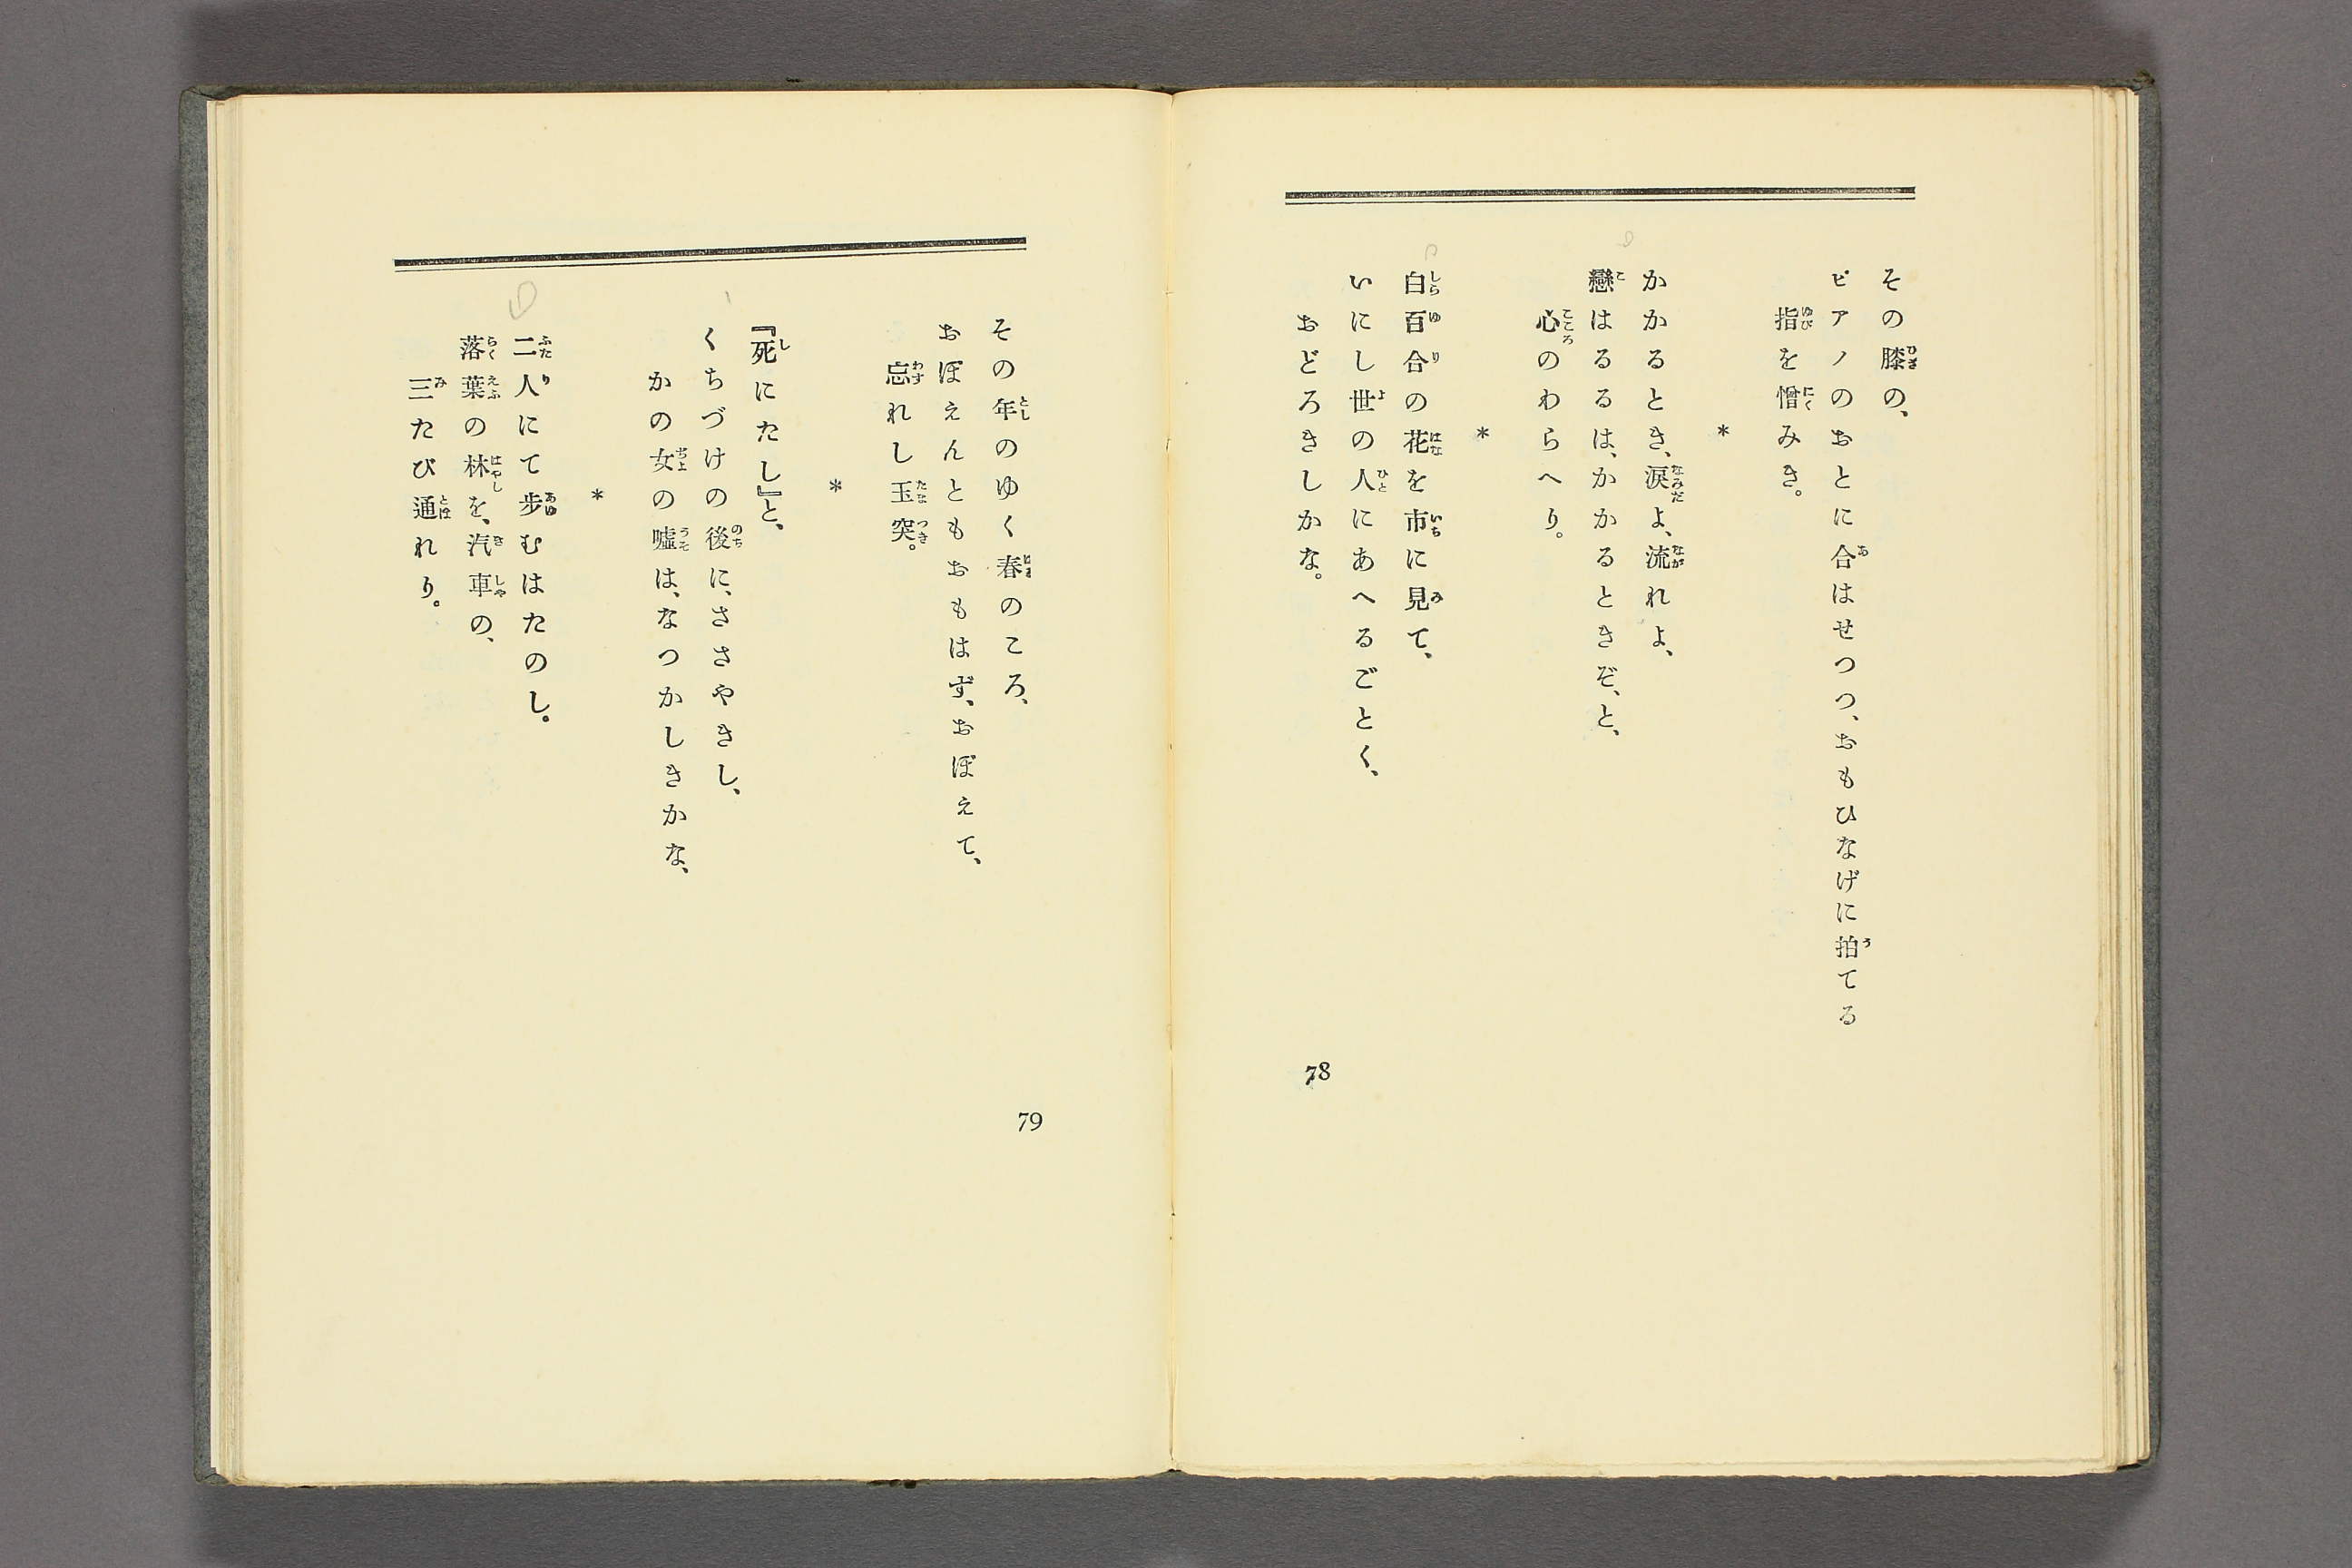 その膝の、
ピアノのおとに合はせつつ、おもひなげに拍てる
指を憎みき。
*
かかるとき、涙よ、流れよ、
戀はるるは、かかるときぞ、と、
心のわらへり。
*
白百合の花を市に見て、
いにし世の人にあへるごとく、
おどろきしかな。
78
その年のゆく春のころ、
おぼえんともおもはず、おぼえて、
忘れし玉突。
*
『死にたし』と、
くちづけの後に、ささやきし、
かの女の嘘は、なつかしきかな、
*
二人にて歩むはたのし。
落葉の林を、汽車の、
三たび通れり。
79